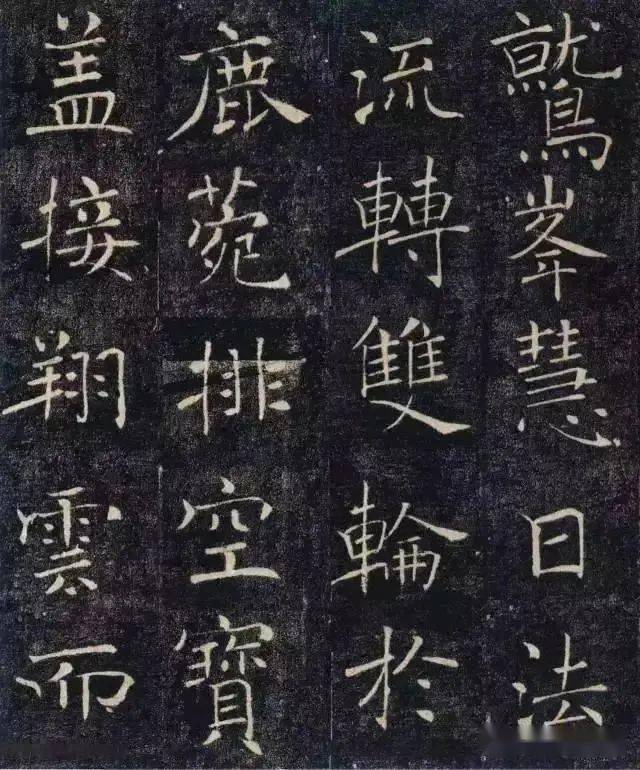 鷲峯慧日法
流轉雙輪於
鹿菀排空寶
盖接翔雲而